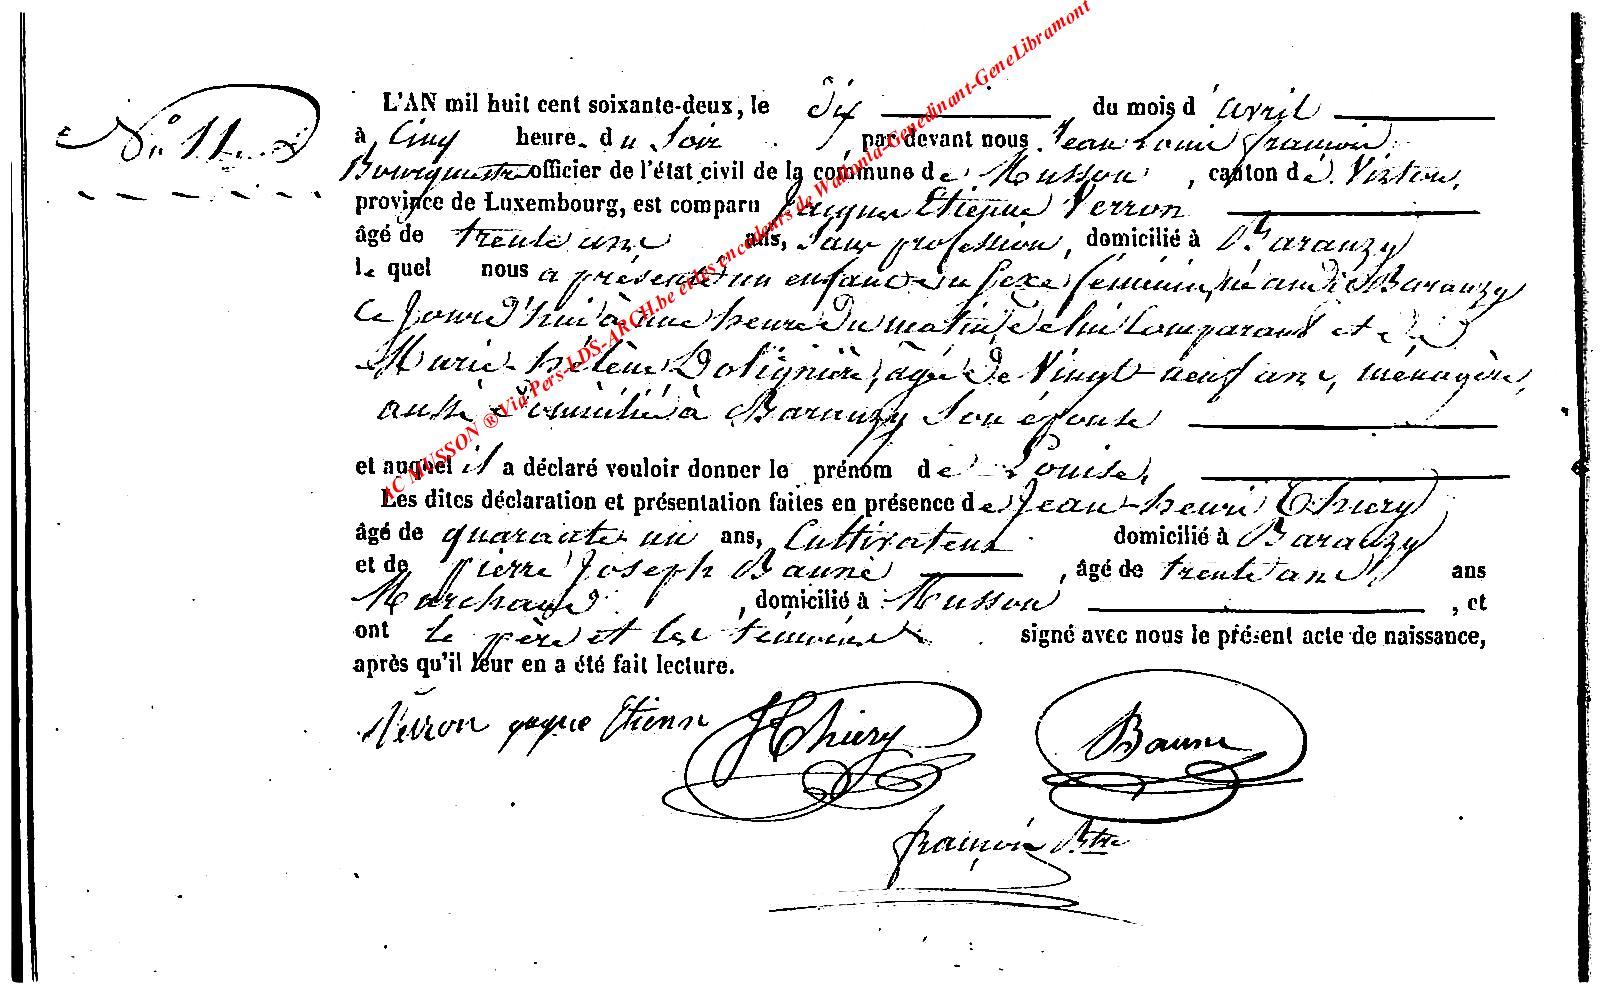 L'AN mil huit cent soixante-deux, le dix du mois d'avril
N° 11
à Cinq heure. du Soir, par devant nous Jean Louis françois
Bourgmestre officier de l'état civil de la commune de Musson, canton de Virton,
province de Luxembourg, est comparu Jacque Etienne Verron
âgé de trente une ans, Sans profession, domicilié à Baranzy
le quel nous a présenté un enfant du sexe féminin, né audit Baranzy
ce jourd'hui à une heure du matin, de lui Comparant et de
Marie hélène agée de Vingt-neuf ans, ménagère,
aussi domicilié à Baranzy Son épouse
et auquel il a déclaré vouloir donner le prénom de Louise,
Les dites déclaration et présentation faites en présence de Jean-henri Thiery
âgé de quarante un ans, Cultivateur domicilié à Baranzy
et de pierre Joseph Bauné, âgé de trente ans ans
Marchand, domicilié à Musson, et
ont le père et les témoins signé avec nous le présent acte de naissance,
après qu'il leur en a été fait lecture.
Verron Etienne JHThiery Baune
françois Btre
AC MUSSON ® Via Pers-LDS-ARCH.be et les encodeurs de Wallonia-Genedinant-GeneLibramont